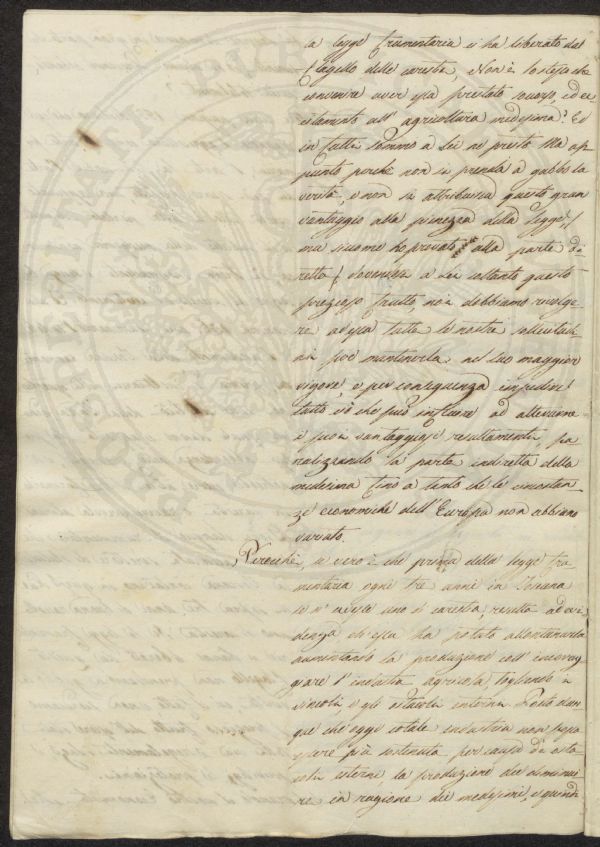 la legge frumentaria ci ha liberato dal
flagello delle carestie, Non è lo stesso che
convenire aver essa prestato soccorso, ed ec-
citamento all' agricoltura medesima? Ed
in fatti sommo a Lei ne prestò. Ma ap-
punto perchè non si prenda a gabbo la
verità, e non si attribuisca questo gran
vantaggio alla pienezza della Legge,
ma siccome ho provato alla parte di-
retta, dovendosi a Lei soltanto questo
prezioso frutto, noi dobbiamo rivolge-
re ad essa tutte le nostre sollecitudi-
ni per mantenerla nel suo maggior
vigore, e per conseguenza impedire
tutto ciò che può influire ad alterarne
i suoi vantaggiosi resultamenti, pa-
ralizzando la parte indiretta della
medesima fino a tanto che le circostan-
ze economiche dell' Europa non abbiano
variato.
Perocchè, se vero è che prima della legge fru-
mentaria ogni tre anni in Toscana
se n' avesse uno di carestia, resulta ad evi-
denza che essa ha potuto allontanarla
aumentando la produzione coll' incorag-
giare l' industria agricola, togliendo i
vincoli, e gli ostacoli interni. Posto dun-
que che oggi cotale industria non possa
essere più sostenuta per causa di osta-
coli esterni la produzione dee diminui-
re in ragione dei medesimi, e quindi